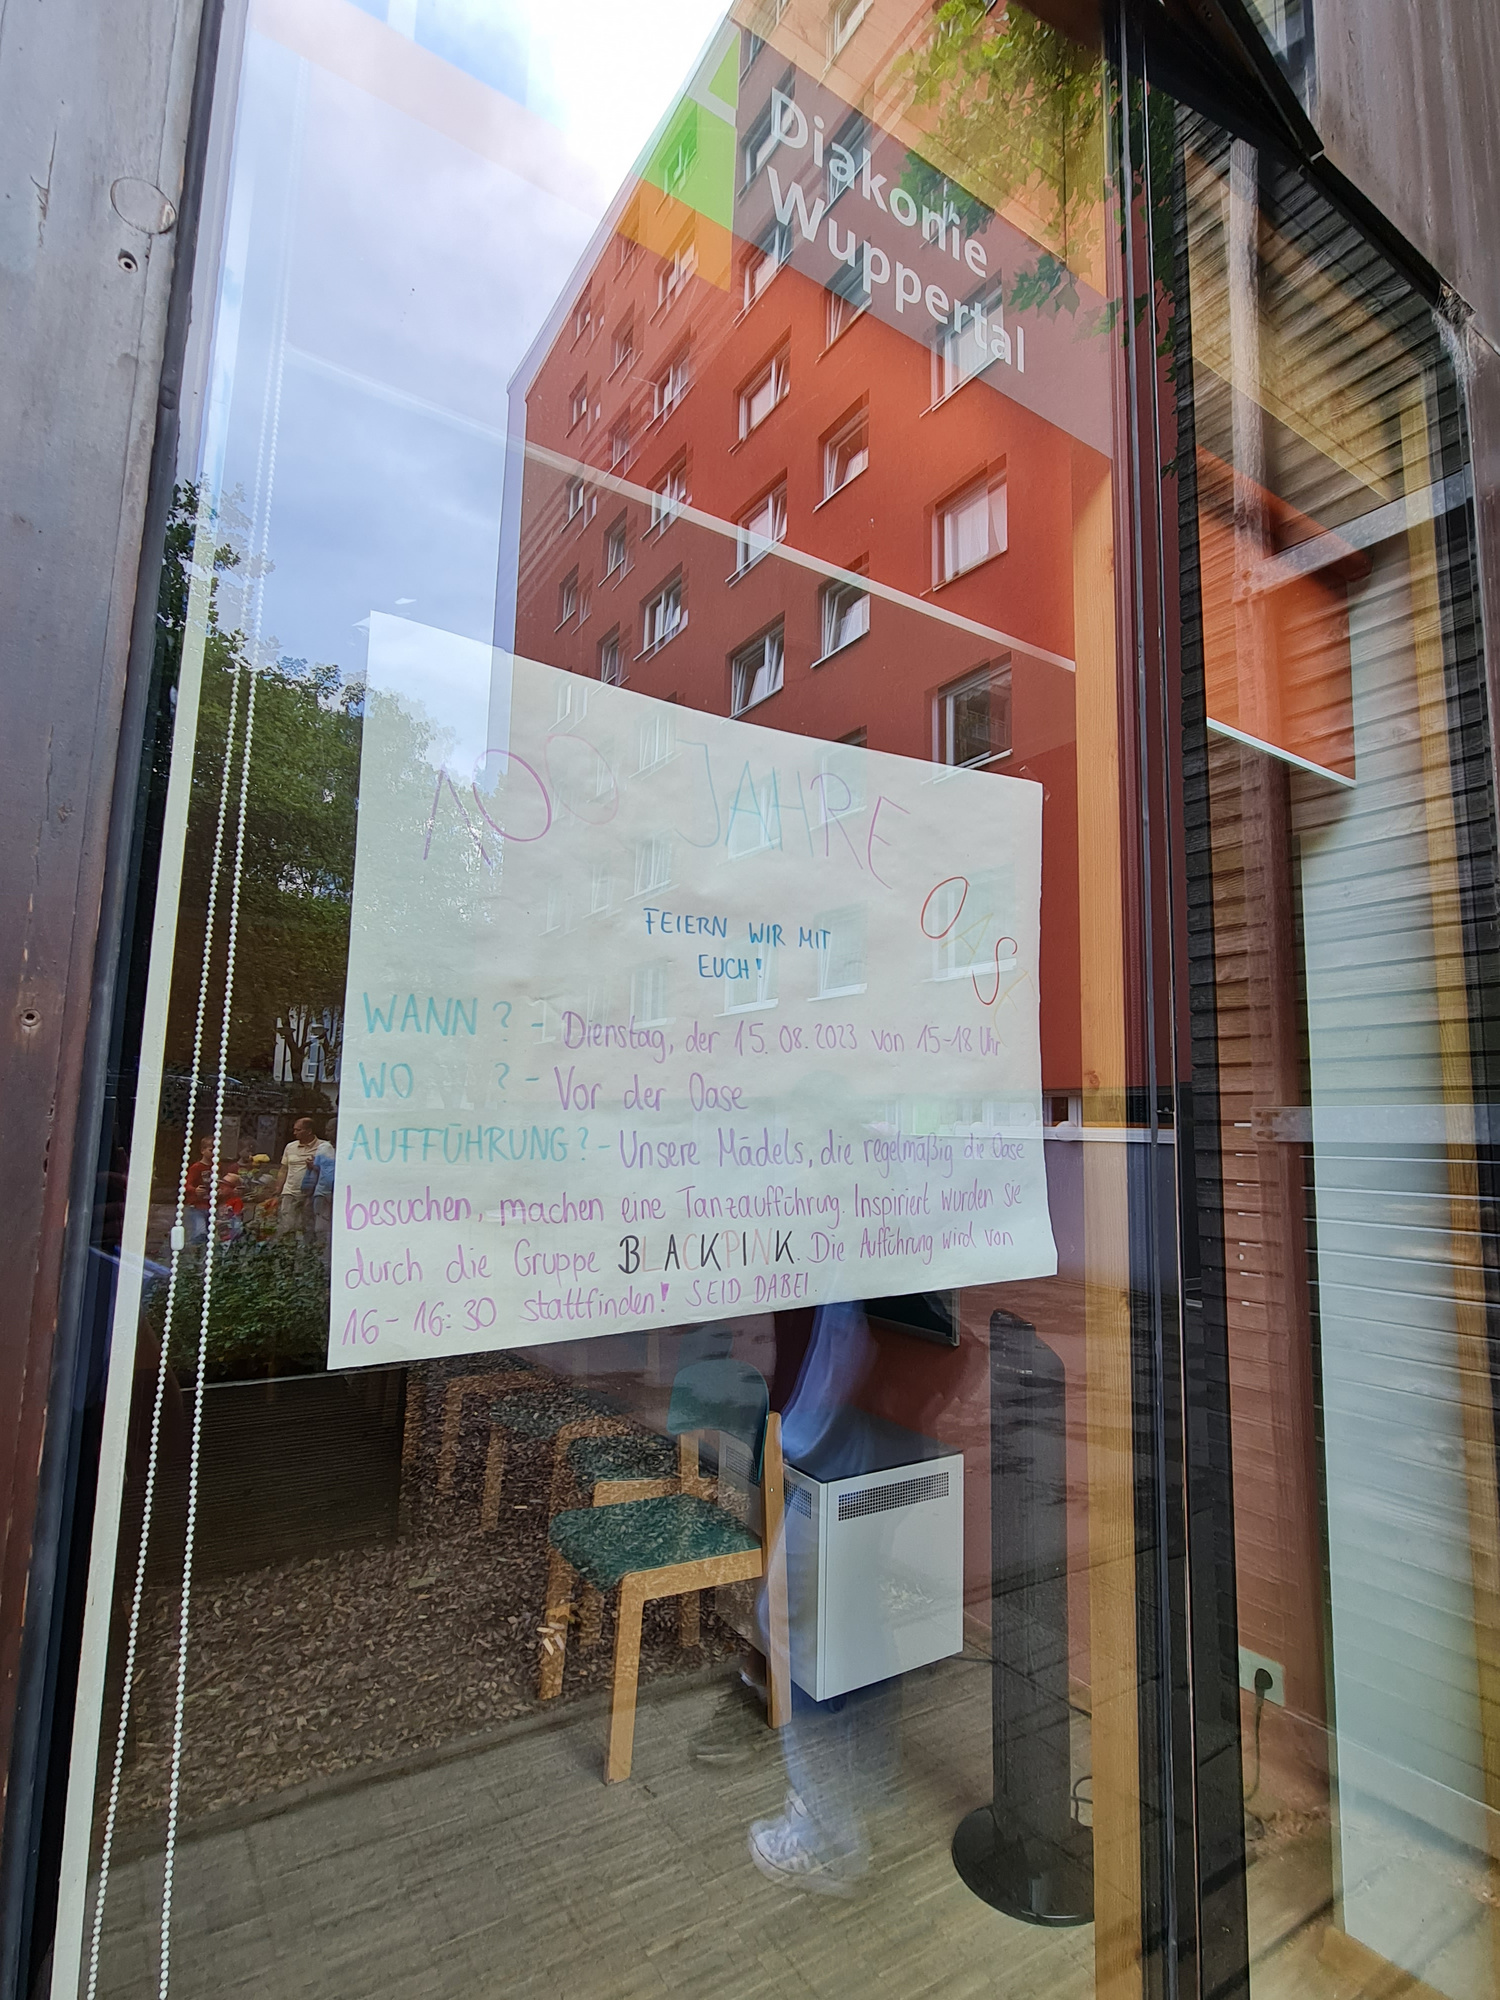 Diakonie
Wuppertal
100 JAHRE
OASE
FEIERN WIR MIT
EUCH!
WANN? - Dienstag, der 15.08.2023 von 15-18 Uhr
WO ? - Vor der Oase
AUFFÜHRUNG? - Unsere Mädels, die regelmäßig die Oase
besuchen, machen eine Tanzaufführung. Inspiriert wurden sie
durch die Gruppe BLACKPINK. Die Aufführung wird von
16 - 16:30 stattfinden! SEID DABEI.